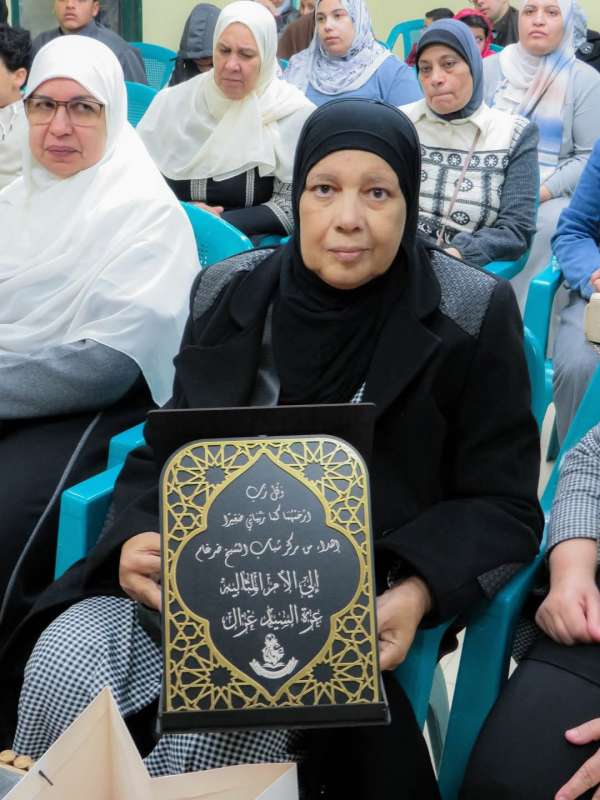 وقل رب
ارحمهما كما ربياني صغيرا
إهداء من مركز شباب الشيخ ضرغام
إلى الأم المثالية
عزة السيد غزال